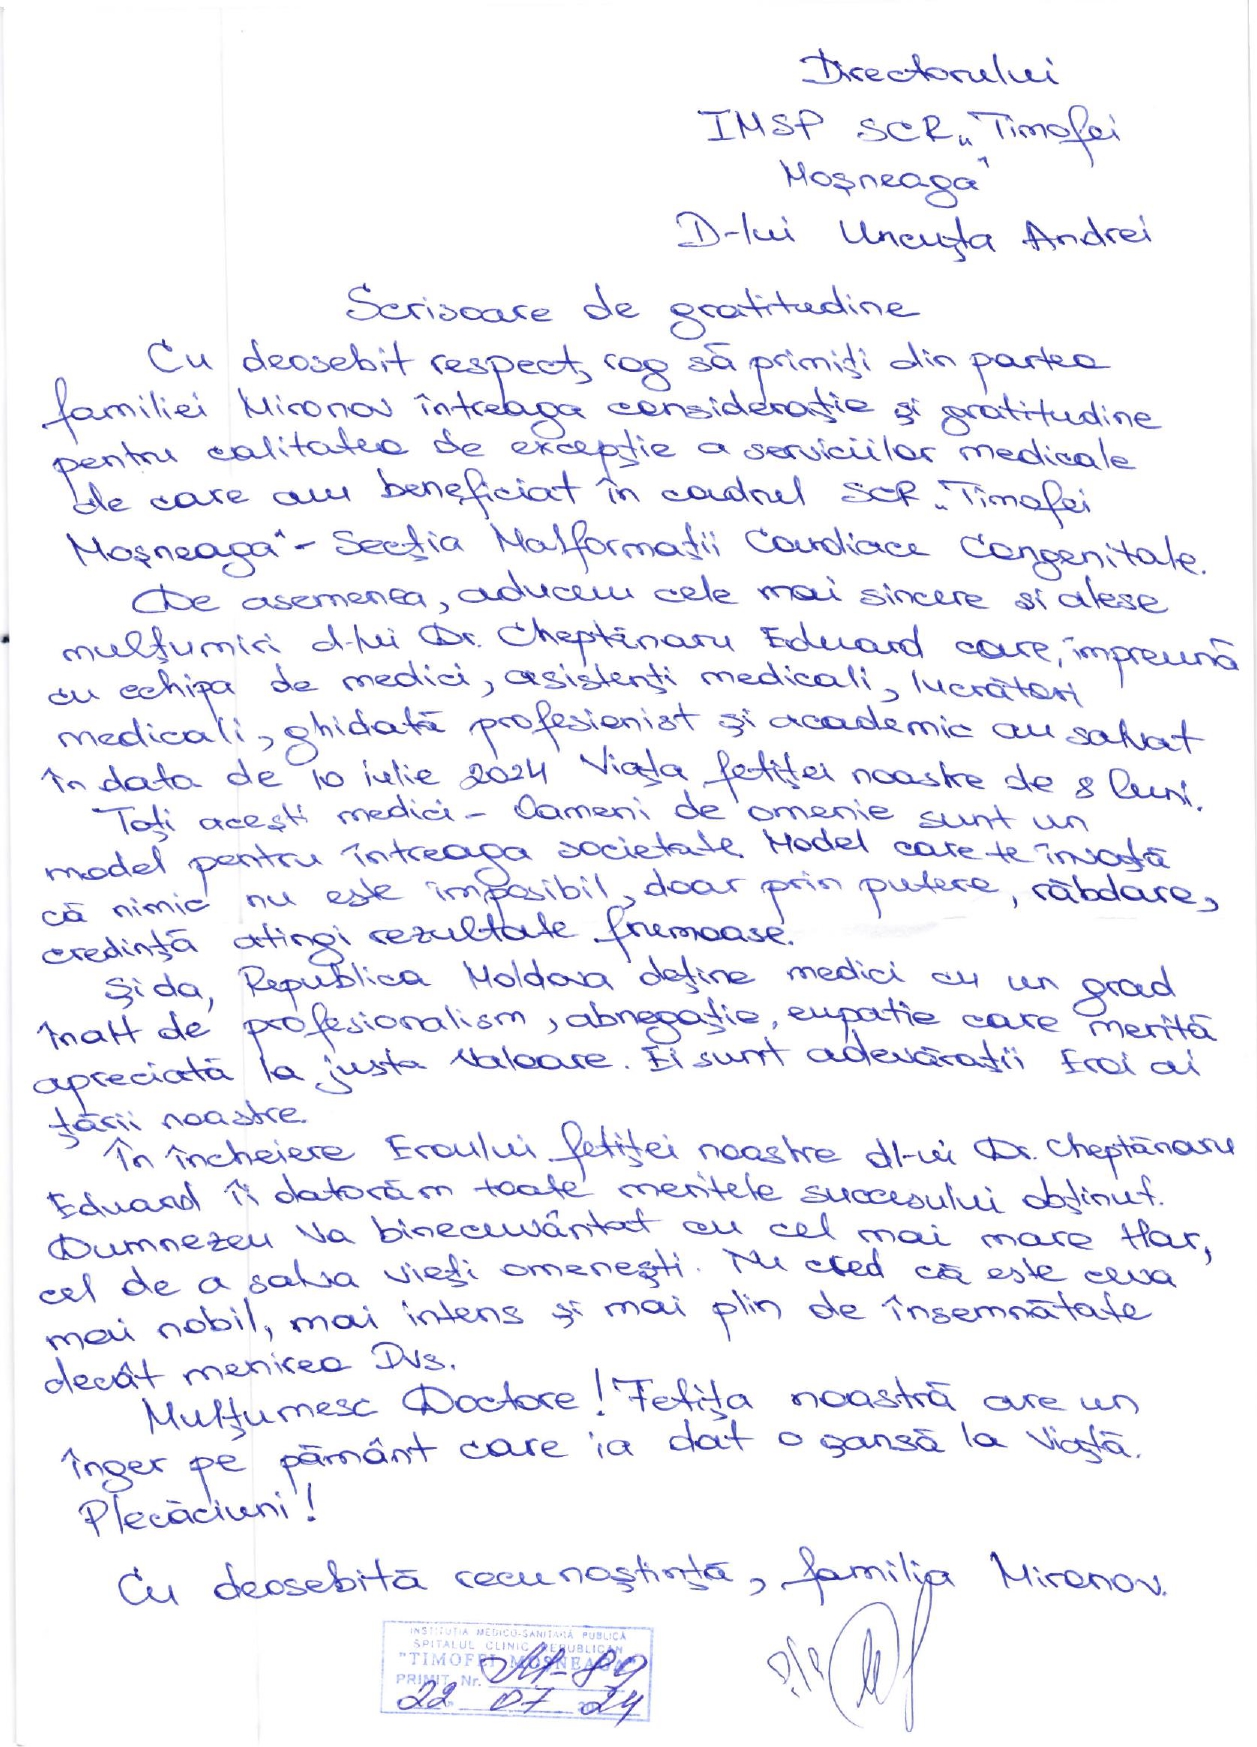 Directorului
IMSP SCR „Timofei
Moșneaga"
D-lui Uncuța Andrei
Scrisoare de gratitudine
Cu deosebit respect, rog să primiți din partea
familiei Mironov întreaga considerație și gratitudine
pentru calitatea de excepție a serviciilor medicale
de care am beneficiat în cadrul SCR „Timofei
Moșneaga" - Secția Malformații Cardiace Congenitale.
De asemenea, aducem cele mai sincere si alese
mulțumiri d-lui Dr. Cheptănaru Eduard care, împreună
cu echipa de medici, asistenți medicali, lucrători
medicali, ghidată profesionist și academic au salvat
în data de 10 iulie 2024 Viața fetiței noastre de 8 luni.
Toți acești medici - Oameni de omenie sunt un
model pentru întreaga societate. Model care te învață
că nimic nu este imposibil, doar prin putere, răbdare,
credință atingi rezultate frumoase.
Și da, Republica Moldova deține medici cu un grad
înalt de profesionalism, abnegație, empatie care merită
apreciată la justa Valoare. Ei sunt adevărații Eroi ai
țării noastre.
În încheiere Eroului fetiței noastre dl-ui Dr. Cheptănaru
Eduard îi datorăm toate meritele succesului obținut.
Dumnezeu Va binecuvântat cu cel mai mare Har,
cel de a salva vieți omenești. Nu cred că este ceva
mai nobil, mai intens și mai plin de însemnătate
decât menirea Dvs.
Mulțumesc Doctore! Fetița noastră are un
înger pe pământ care ia dat o șansă la Viață.
Plecăciuni!
Cu deosebită recunoștință, familia Mironov.
INSTITUȚIA MEDICO-SANITARĂ PUBLICĂ
SPITALUL CLINIC REPUBLICAN
"TIMOFEI MOȘNEAGA"
PRIMIT Nr.
22 07 24